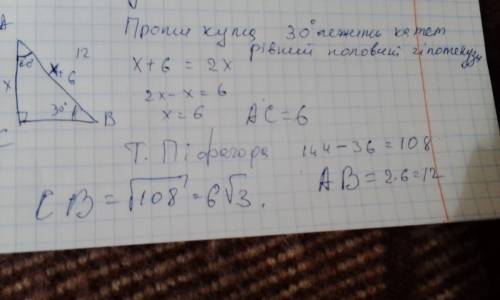 Проти кута 30° лежить катет
рівний половині гіпотенузи
x+6 = 2x
2x-x = 6
x = 6
AC = 6
A
12
60°
x+6
x
30°
B
C
Т. Піфагора 144-36 = 108
CB = √108 = 6√3.
AB = 2·6 = 12